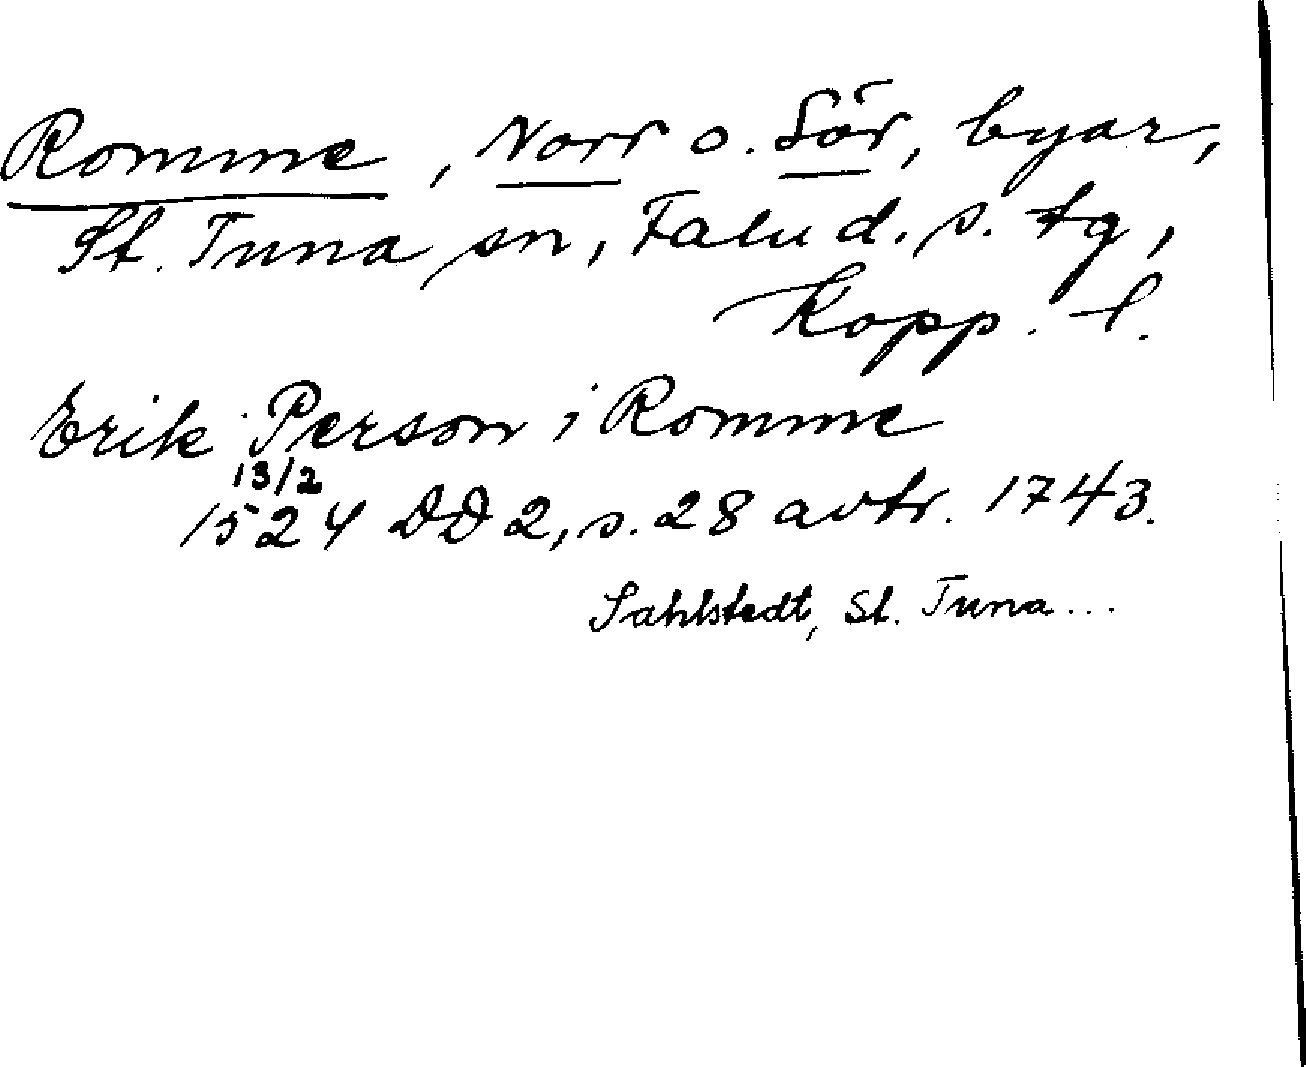 Romme, Norr o. Sör, byar,
St. Tuna sn, Falu d. s. tg,
Kopp. l.
Erik Person i Romme
13/2
1524 DD 2, s. 28 avtr. 1743.
Sahlstedt, St. Tuna...